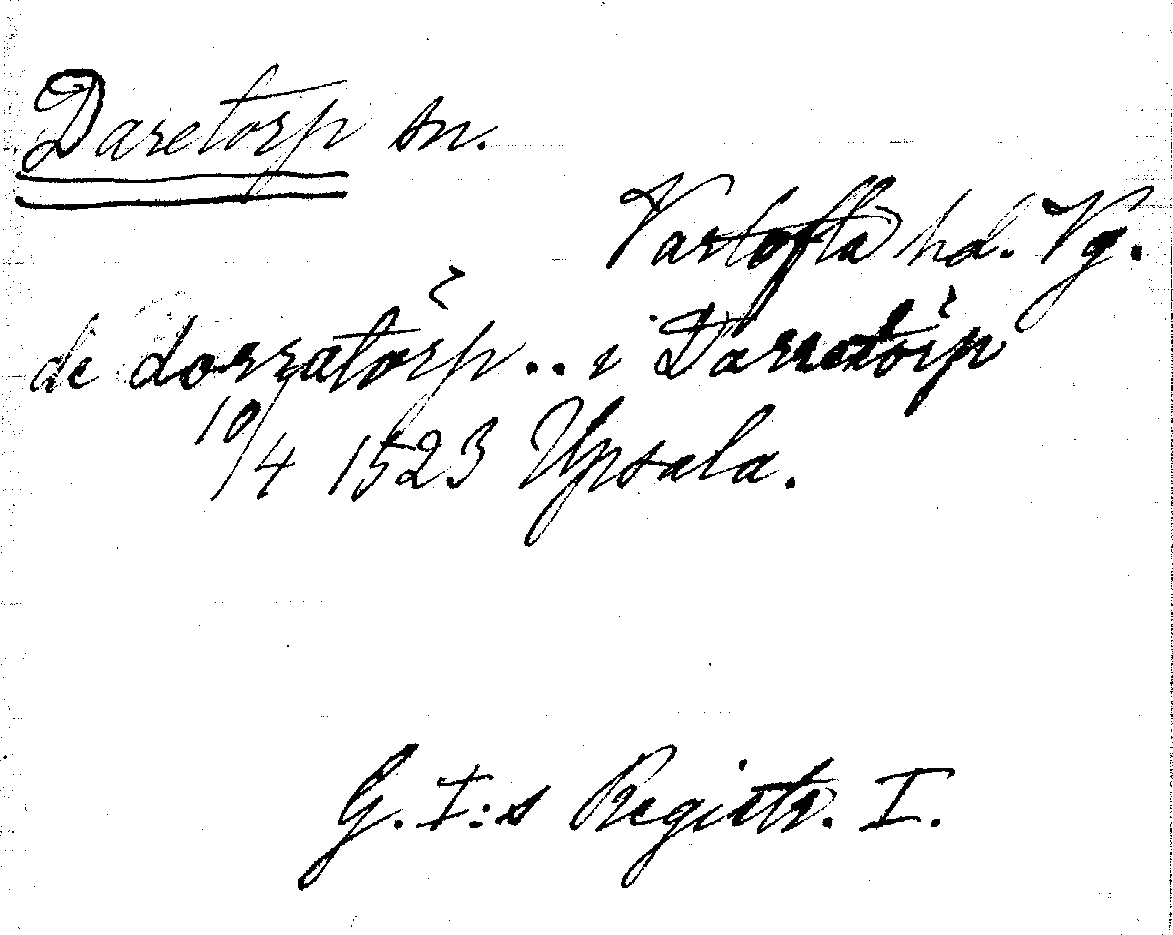 Daretorp sn.
Vartofta hd. Vg.
de dorratorp .. i Darretorp
10/4 1523 Upsala.
G. I:s Registr. I.